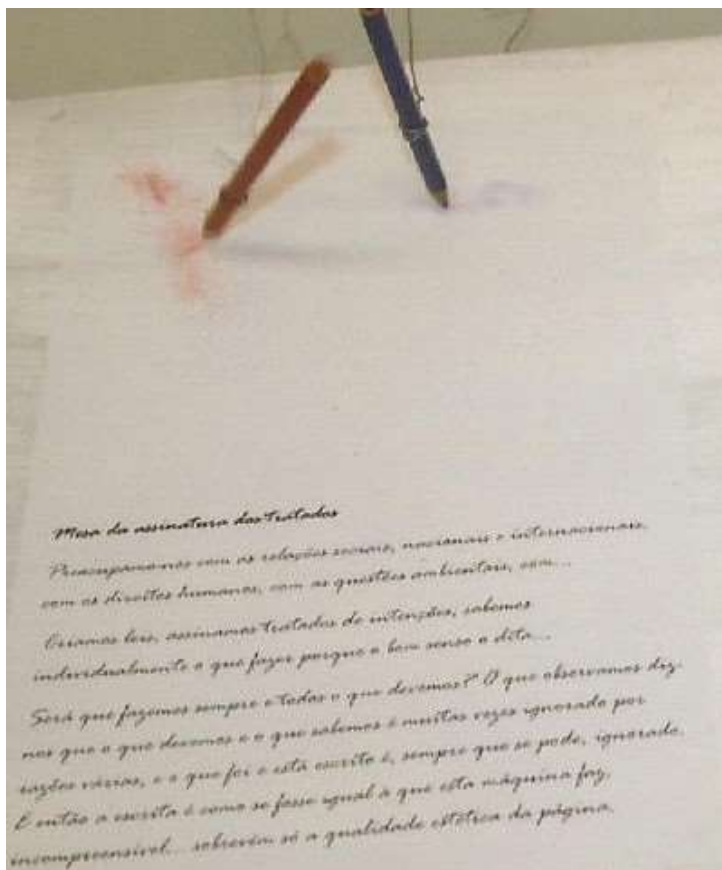 Mesa da assinatura dos tratados
Preocupamo-nos com as relações sociais, nacionais e internacionais,
com os direitos humanos, com as questões ambientais, com...
Criamos leis, assinamos tratados de intenções, sabemos
individualmente o que fazer porque o bom senso o dita...
Será que fazemos sempre e todos o que devemos? O que observamos diz-
nos que o que devemos e o que sabemos é muitas vezes ignorado por
razões várias, e o que foi e está escrito é, sempre que se pode, ignorado.
E então a escrita é como se fosse igual à que esta máquina faz,
incompreensível... sobrevém só a qualidade estética da página.